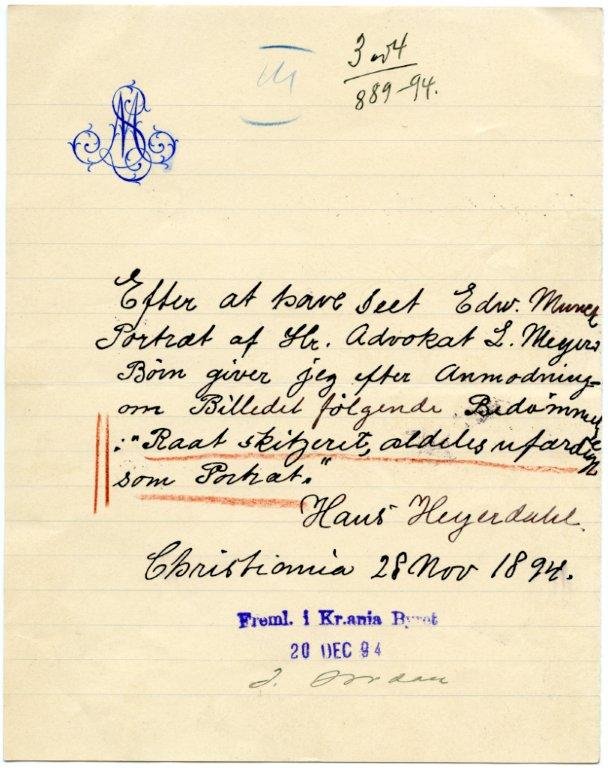 3 av 4
889-94.
Efter at have seet Edw. Munch
Portræt af Hr. Advokat L. Meyers
Børn giver jeg efter Anmodning
om Billedet følgende Bedømmelse
:"Raat skitzeret, aldeles ufærdig
som Portræt."
Hans Heyerdahl.
Christiania 28 Nov 1894.
Freml. i Kr.ania Byret
20 DEC 94